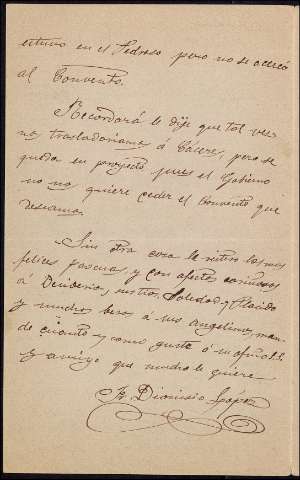 estuvo en el Pedroso pero no se acercó
al Convento.
Recordará le dije que tal vez
nos trasladaríamos á Cáceres, pero se
queda en proyecto pues el Gobierno
no no quiere ceder el Convento que
deseama.
Sin otra cosa le reitero las mas
felices pascuas, y con afectos cariñosos
á Soledad y Plácido
y muchos besos á sus angelinos, man-
de cuanto y como guste á su afmo. S.S.
y amigo que mucho le quiere
Fr. Dionisio López